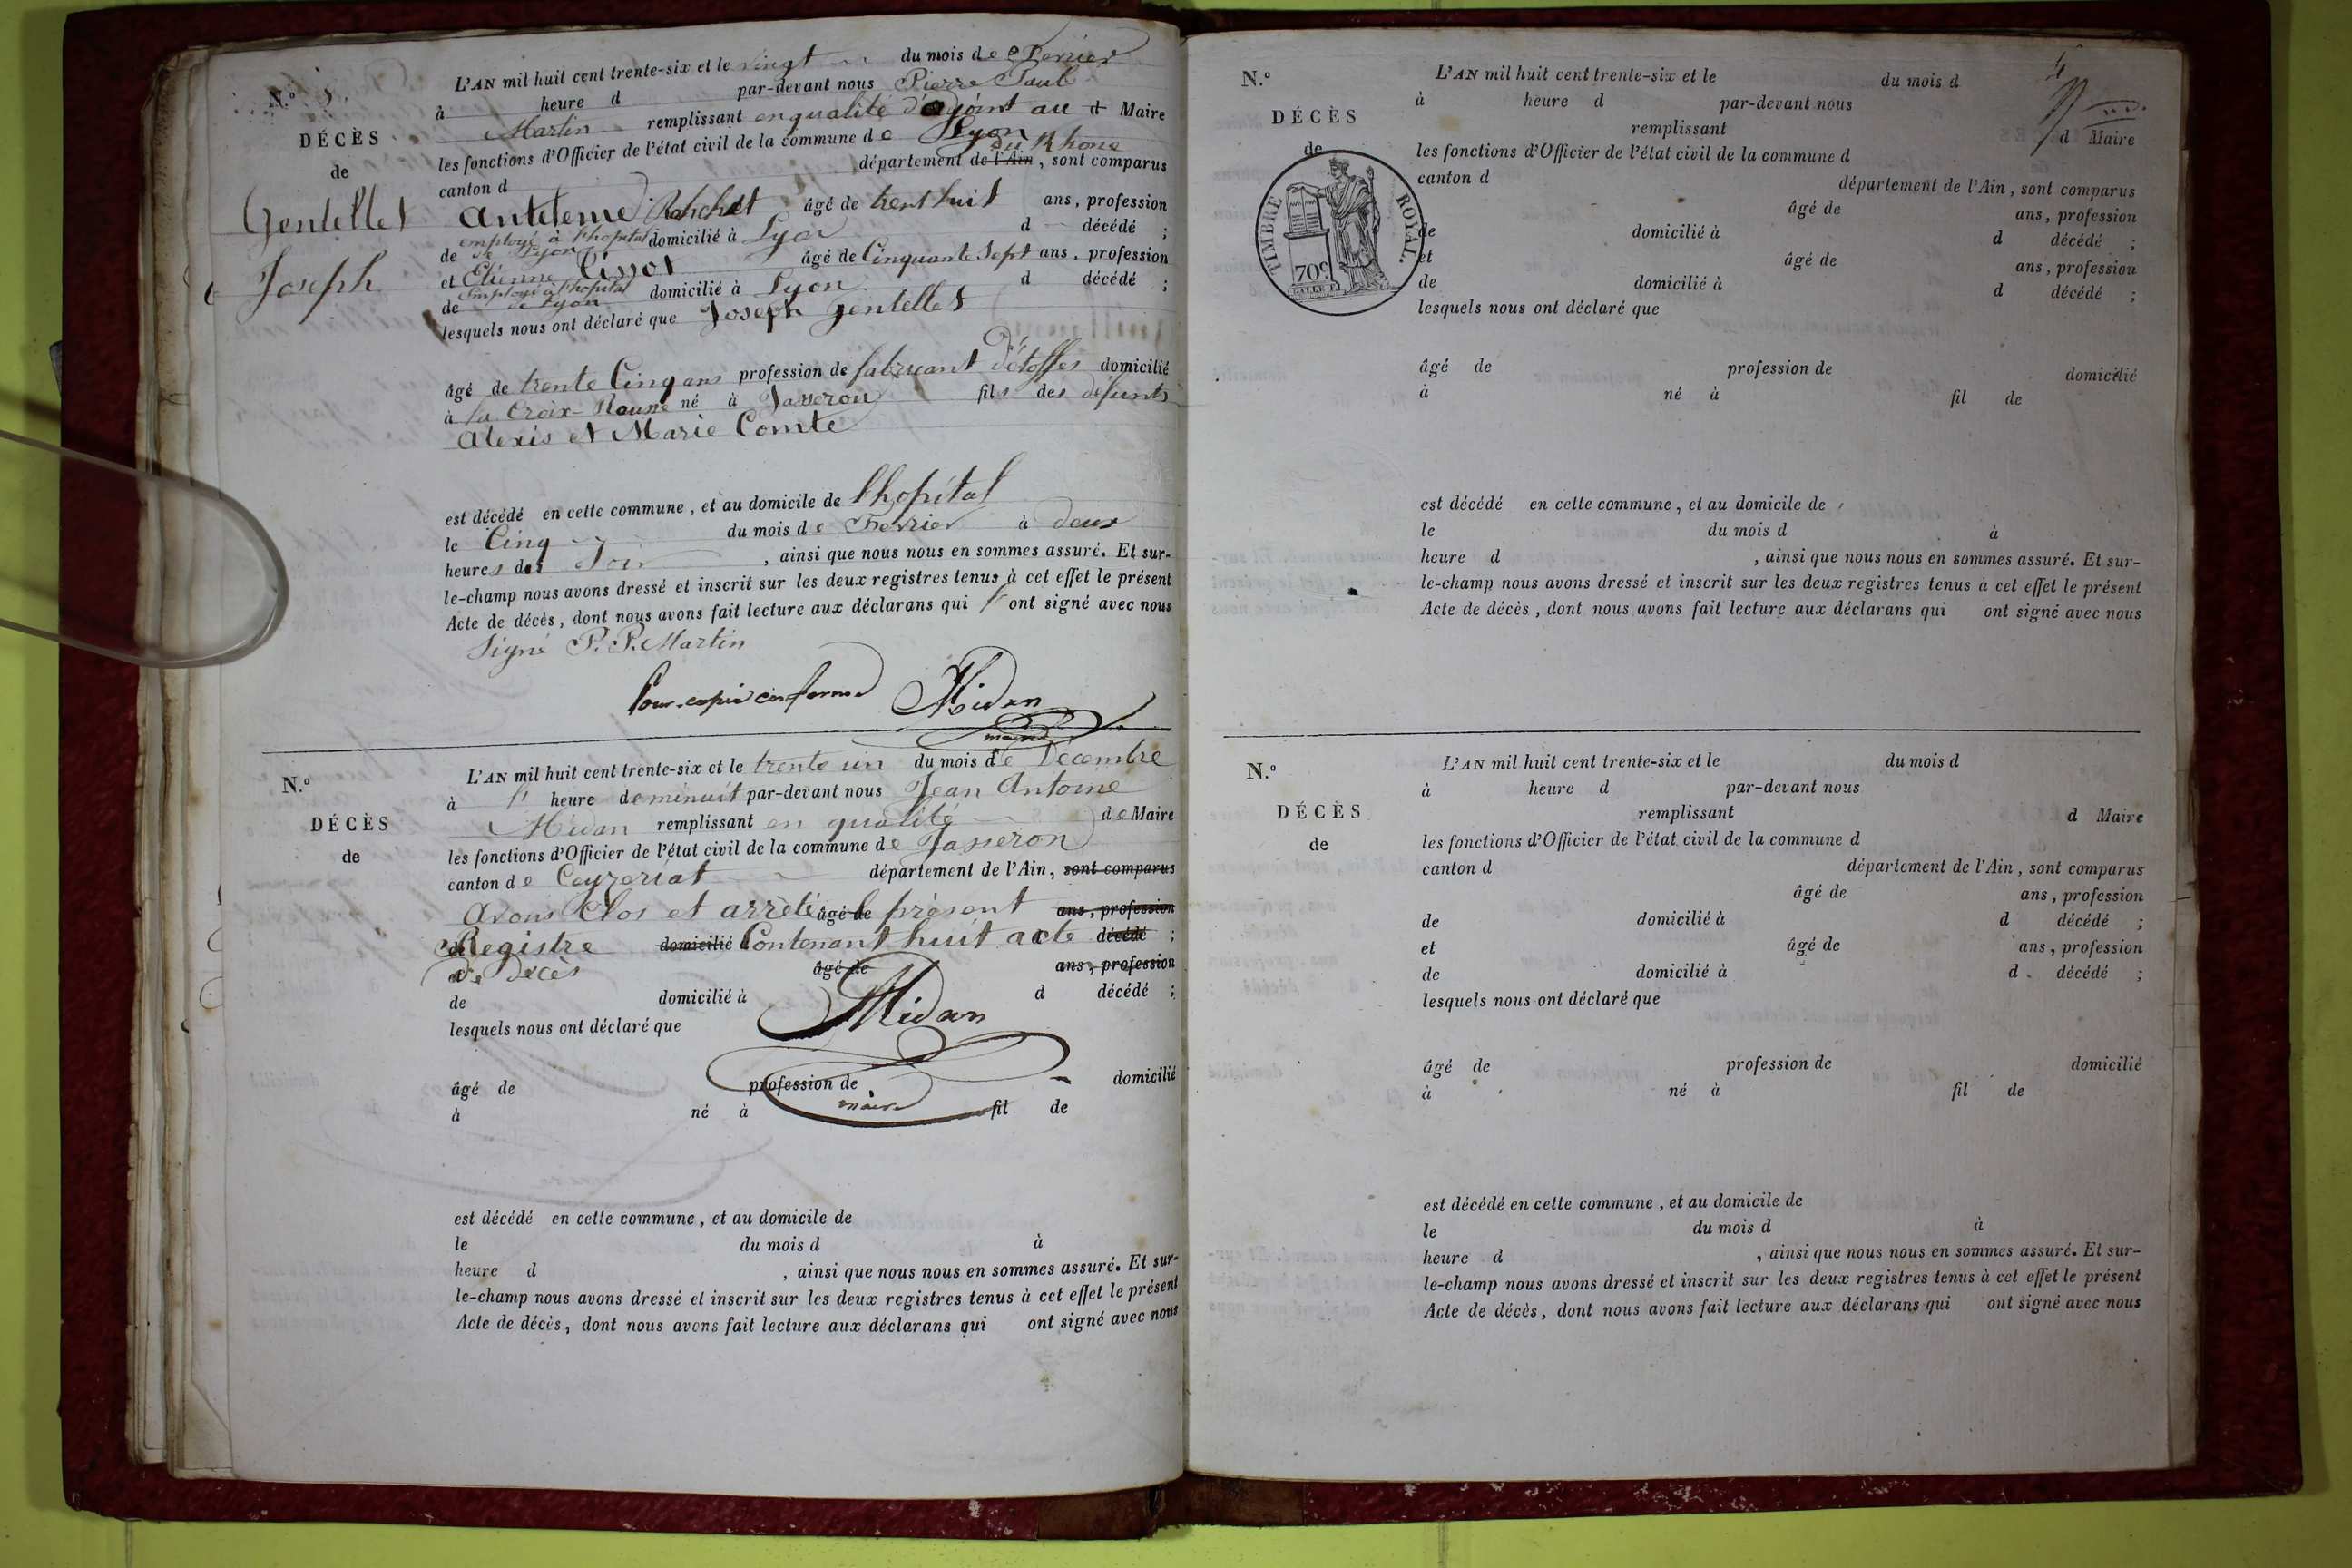 N.º 8.
DÉCÈS
de
Gentellet
Joseph
L'AN mil huit cent trente-six et le vingt du mois de Fevrier
à heure d par-devant nous Pierre Paul
Martin remplissant en qualité d'adjoint au d Maire
les fonctions d'Officier de l'état civil de la commune de Lyon
du Rhone
canton d département de l'Ain, sont comparus
Anteleme Rohchet âgé de trent huit ans, profession
employé à l'hopital
de de Lyon domicilié à Lyon d décédé ;
et Etienne Tissot âgé de Cinquante Sept ans, profession
Employé à l'hopital
de de Lyon domicilié à Lyon d décédé ;
lesquels nous ont déclaré que Joseph Gentellet
âgé de trente Cinq ans profession de fabricant d'étoffes domicilié
à la Croix-Rousse né à Jasseron fils des défunts
Alexis et Marie Comte
est décédé en cette commune, et au domicile de l'hopital
le Cinq du mois de Fevrier à deux
heures du Soir, ainsi que nous nous en sommes assuré. Et sur-
le-champ nous avons dressé et inscrit sur les deux registres tenus à cet effet le présent
Acte de décès, dont nous avons fait lecture aux déclarans qui ont signé avec nous
Signé P. P. Martin
Pour copie conforme Midan
maire
N.º
DÉCÈS
de
L'AN mil huit cent trente-six et le trente un du mois de Décembre
à heure de minuit par-devant nous Jean Antoine
Midan remplissant en qualité de Maire
les fonctions d'Officier de l'état civil de la commune de Jasseron
canton de Ceyzeriat département de l'Ain, sont comparus
Avons Clos et arrêté âgé de le présent ans, profession
de Registre domicilié Contenant huit acte décédé ;
de Décès âgé de ans, profession
de domicilié à d décédé ;
lesquels nous ont déclaré que
Midan
âgé de profession de domicilié
maire
à né à fil de
est décédé en cette commune, et au domicile de
le du mois d à
heure d , ainsi que nous nous en sommes assuré. Et sur-
le-champ nous avons dressé et inscrit sur les deux registres tenus à cet effet le présent
Acte de décès, dont nous avons fait lecture aux déclarans qui ont signé avec nous
N.º
DÉCÈS
de
TIMBRE ROYAL.
70c
L'AN mil huit cent trente-six et le du mois d
à heure d par-devant nous
remplissant d Maire
les fonctions d'Officier de l'état civil de la commune d
canton d département de l'Ain, sont comparus
âgé de ans, profession
de domicilié à d décédé ;
et âgé de ans, profession
de domicilié à d décédé ;
lesquels nous ont déclaré que
âgé de profession de domicilié
à né à fil de
est décédé en cette commune, et au domicile de
le du mois d à
heure d , ainsi que nous nous en sommes assuré. Et sur-
le-champ nous avons dressé et inscrit sur les deux registres tenus à cet effet le présent
Acte de décès, dont nous avons fait lecture aux déclarans qui ont signé avec nous
N.º
DÉCÈS
de
L'AN mil huit cent trente-six et le du mois d
à heure d par-devant nous
remplissant d Maire
les fonctions d'Officier de l'état civil de la commune d
canton d département de l'Ain, sont comparus
âgé de ans, profession
de domicilié à d décédé ;
et âgé de ans, profession
de domicilié à d décédé ;
lesquels nous ont déclaré que
âgé de profession de domicilié
à né à fil de
est décédé en cette commune, et au domicile de
le du mois d à
heure d , ainsi que nous nous en sommes assuré. Et sur-
le-champ nous avons dressé et inscrit sur les deux registres tenus à cet effet le présent
Acte de décès, dont nous avons fait lecture aux déclarans qui ont signé avec nous